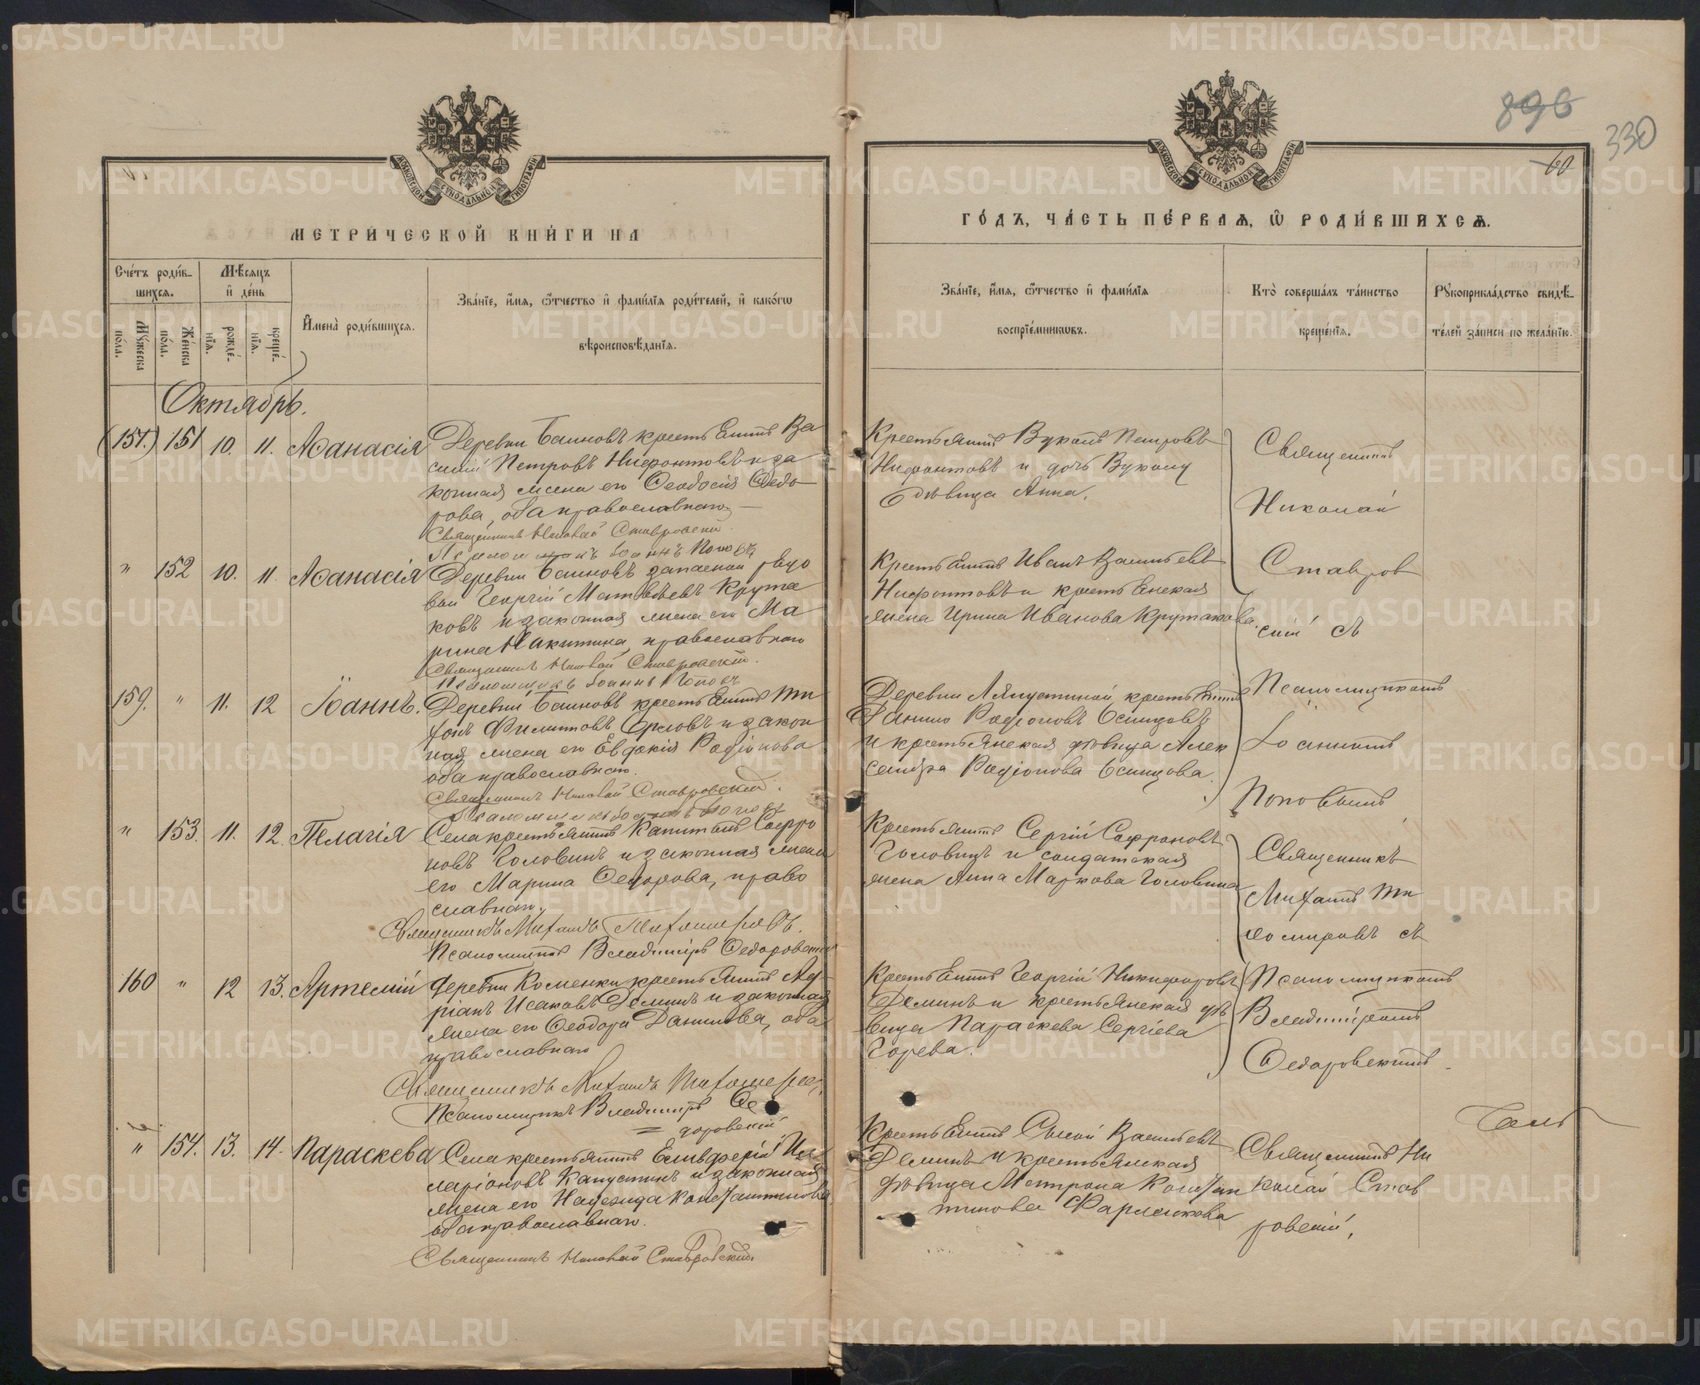 896
330
60
МЕТРИ́ЧЕСКОЙ КНИ́ГИ НА
ГО́ДЪ, ЧА́СТЬ ПЕ́РВАѦ, Ѽ РОДИ́ВШИХСѦ.
Сче́тъ роди́в-
шихсѧ.
Мѣ́сѧцъ
и҆ де́нь
Мꙋ́жеска по́ла.
Же́нска по́ла.
рожде́-
нїѧ.
креще́-
нїѧ.
И҆мена̀ роди́вшихсѧ.
Зва́нїе, и҆́мѧ, ѻ҆́тчество и҆ фами́лїѧ роди́телей, и҆ како́гѡ
вѣроисповѣ́данїѧ.
Зва́нїе, и҆́мѧ, ѻ҆́тчество и҆ фами́лїѧ
воспрїе́мникѡвъ.
Кто̀ соверша́лъ та́инство
креще́нїѧ.
Рꙋкоприкла́дство свидѣ́-
телей за́писи по жела́нїю.
Октябрь.
(151.) 151 10. 11. Аѳанасія
Деревни Баиновъ крестьянинъ Ва
силій Петровъ Нифонтовъ и за
конная жена его Ѳеодосія Ѳедо
рова, оба православнаго
Священникъ Николай Ставровскій
Псаломщикъ Іоаннъ Поповъ
Крестьянинъ Вуколъ Петровъ
Нифонтовъ и дочь Вукола
дѣвица Анна.
Священникъ
Николай
Ставров
скій съ
Псаломщикомъ
Іоанномъ
Поповымъ
" 152 10. 11. Аѳанасія
Деревни Баиновъ запасной рядо
вой Георгій Матвѣевъ Крута
ковъ и законная жена его Ма
рина Никитина, православнаго
Священникъ Николай Ставровскій.
Псаломщикъ Іоаннъ Поповъ
Крестьянинъ Иванъ Васильевъ
Нифонтовъ и крестьянская
жена Ирина Иванова Крутакова.
159. " 11. 12 Іоаннъ.
Деревни Баиновъ крестьянинъ Ти
хонъ Филиповъ Орловъ и закон
ная жена его Евдокія Родіонова
оба православнаго.
Священникъ Николай Ставровскій.
Псаломщикъ Іоаннъ Поповъ
Деревни крестьянинъ
Данило Родіоновъ Осинцовъ
и крестьянская дѣвица Алек
сандра Родіонова Осинцова.
" 153. 11. 12. Пелагія
Села крестьянинъ Капитонъ Софро
новъ Головинъ и законная жена
его Марина Ѳедорова, право
славнаго.
Священникъ Михаилъ Тихомировъ.
Псаломщикъ Владиміръ Ѳедоровскій
Крестьянинъ Сергій Софроновъ
Головинъ и солдатская
жена Анна Маркова Головина
Священникъ
Михаилъ Ти
хомировъ съ
Псаломщикомъ
Владиміромъ
Ѳедоровскимъ.
160 " 12 13. Артемій
Деревни Коменки крестьянинъ Ад
ріанъ Исаковъ Деминъ и законная
жена его Ѳеодора Данилова, оба
православнаго
Священникъ Михаилъ Тихомировъ,
Псаломщикъ Владиміръ Ѳе
доровскій
Крестьянинъ Георгій Никифоровъ
Деминъ и крестьянская дѣ
вица Параскева Сергіева
Горева.
" 154. 13. 14. Параскева
Села крестьянинъ Елевферій Ил
ларіоновъ Капустинъ и законная
жена его Надежда Константинова
оба православнаго.
Священникъ Николай Ставровскій.
Крестьянинъ Васильевъ
Деминъ и крестьянская
дѣвица Матрона Констан
тинова
Священникъ Ни
колай Став
ровскій,